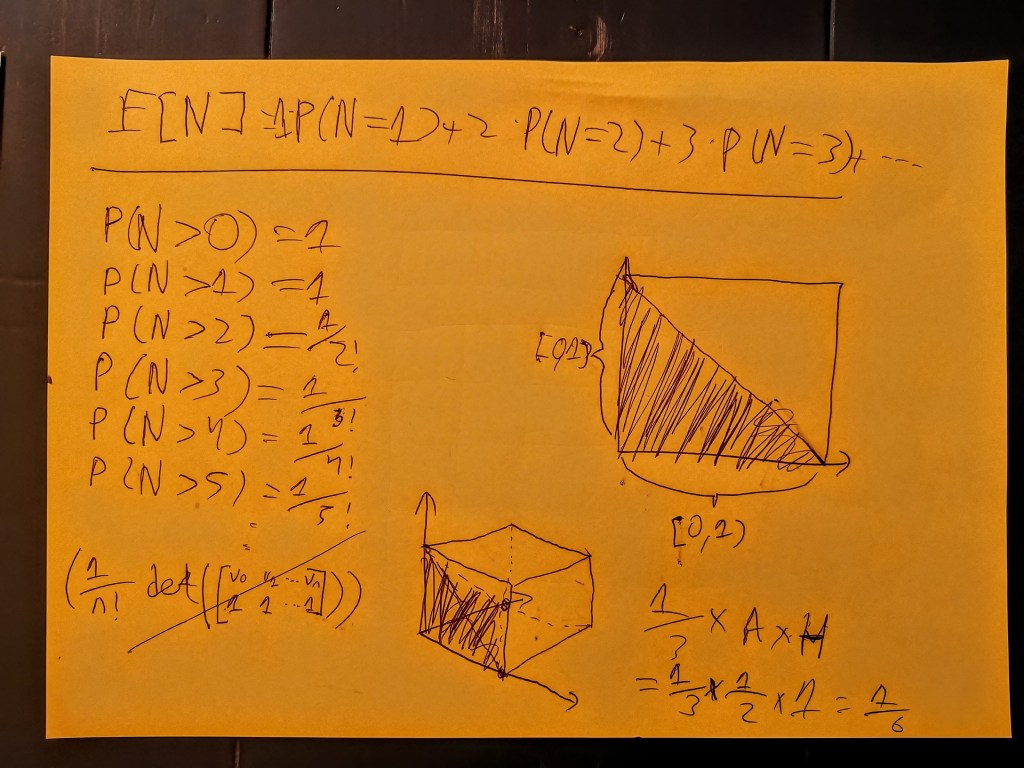 E[N] = 1·P(N=1)+2·P(N=2)+3·P(N=3)+ ---
P(N>0) = 1
P(N>1) = 1
P(N>2) = 1/2!
P(N>3) = 1/3!
P(N>4) = 1/4!
P(N>5) = 1/5!
(1/n! det([v0 v1 ... vn
1 1 ... 1]))
[0,1]
[0,1)
1/3 × A × H
= 1/3 × 1/2 × 1 = 1/6